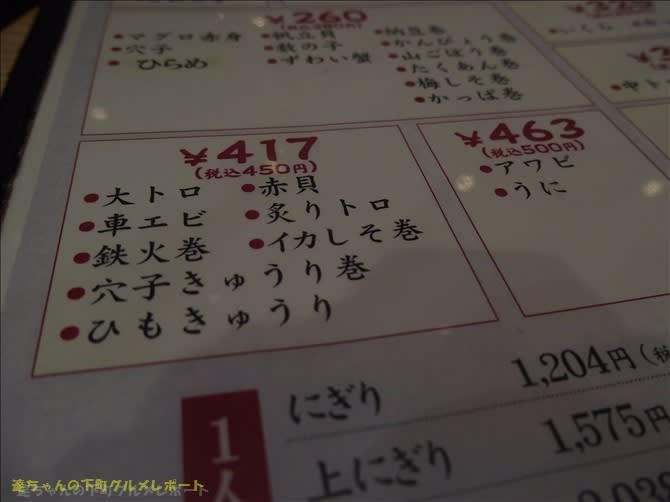 ¥260
・マグロ赤身
・穴子
・ひらめ
・帆立貝
・数の子
・ずわい蟹
・納豆巻
・かんぴょう巻
・山ごぼう巻
・たくあん巻
・梅しそ巻
・かっぱ巻
¥417
(税込450円)
●大トロ
●車エビ
●鉄火巻
●穴子きゅうり巻
●ひもきゅうり
●赤貝
●炙りトロ
●イカしそ巻
¥463
(税込500円)
●アワビ
●うに
1人
にぎり 1,204円(税
上にぎり 1,575円
達ちゃんの下町グルメレポート